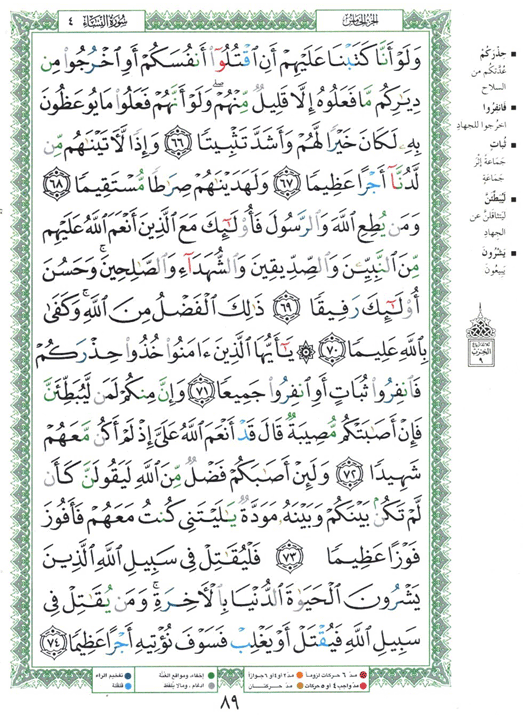 الجزء الخامس
سورة النساء
٤
وَلَوْ أَنَّا كَتَبْنَا عَلَيْهِمْ أَنِ ٱقْتُلُوٓا۟ أَنفُسَكُمْ أَوِ ٱخْرُجُوا۟ مِن
دِيَـٰرِكُم مَّا فَعَلُوهُ إِلَّا قَلِيلٌ مِّنْهُمْ ۖ وَلَوْ أَنَّهُمْ فَعَلُوا۟ مَا يُوعَظُونَ
بِهِۦ لَكَانَ خَيْرًا لَّهُمْ وَأَشَدَّ تَثْبِيتًا ﴿٦٦﴾ وَإِذًا لَّـَٔاتَيْنَـٰهُم مِّن
لَّدُنَّآ أَجْرًا عَظِيمًا ﴿٦٧﴾ وَلَهَدَيْنَـٰهُمْ صِرَٰطًا مُّسْتَقِيمًا ﴿٦٨﴾
وَمَن يُطِعِ ٱللَّهَ وَٱلرَّسُولَ فَأُو۟لَـٰٓئِكَ مَعَ ٱلَّذِينَ أَنْعَمَ ٱللَّهُ عَلَيْهِم
مِّنَ ٱلنَّبِيِّـۧنَ وَٱلصِّدِّيقِينَ وَٱلشُّهَدَآءِ وَٱلصَّـٰلِحِينَ ۚ وَحَسُنَ
أُو۟لَـٰٓئِكَ رَفِيقًا ﴿٦٩﴾ ذَٰلِكَ ٱلْفَضْلُ مِنَ ٱللَّهِ ۚ وَكَفَىٰ
بِٱللَّهِ عَلِيمًا ﴿٧٠﴾ ۞ يَـٰٓأَيُّهَا ٱلَّذِينَ ءَامَنُوا۟ خُذُوا۟ حِذْرَكُمْ
فَٱنفِرُوا۟ ثُبَاتٍ أَوِ ٱنفِرُوا۟ جَمِيعًا ﴿٧١﴾ وَإِنَّ مِنكُمْ لَمَن لَّيُبَطِّئَنَّ
فَإِنْ أَصَـٰبَتْكُم مُّصِيبَةٌ قَالَ قَدْ أَنْعَمَ ٱللَّهُ عَلَىَّ إِذْ لَمْ أَكُن مَّعَهُمْ
شَهِيدًا ﴿٧٢﴾ وَلَئِنْ أَصَـٰبَكُمْ فَضْلٌ مِّنَ ٱللَّهِ لَيَقُولَنَّ كَأَن
لَّمْ تَكُنۢ بَيْنَكُمْ وَبَيْنَهُۥ مَوَدَّةٌ يَـٰلَيْتَنِى كُنتُ مَعَهُمْ فَأَفُوزَ
فَوْزًا عَظِيمًا ﴿٧٣﴾ فَلْيُقَـٰتِلْ فِى سَبِيلِ ٱللَّهِ ٱلَّذِينَ
يَشْرُونَ ٱلْحَيَوٰةَ ٱلدُّنْيَا بِٱلْـَٔاخِرَةِ ۚ وَمَن يُقَـٰتِلْ فِى
سَبِيلِ ٱللَّهِ فَيُقْتَلْ أَوْ يَغْلِبْ فَسَوْفَ نُؤْتِيهِ أَجْرًا عَظِيمًا ﴿٧٤﴾
حِذْرَكُمْ
عُدَّتكم من
السلاح
فانفِرُوا
اخرجوا للجهاد
ثُباتٍ
جَماعة إثْرَ
جَماعَةٍ
لَيُبَطِّئَنَّ
ليتثاقلنّ عن
الجهاد
يَشْرُونَ
يبيعون
الحزب
٩
مد ٦ حركات لزوماً
مد ٢ أو ٤ أو ٦ جوازاً
إخفاء، ومواقع الغُنَّة
تفخيم الراء
مد واجب ٤ أو ٥ حركات
مد حركتان
ادغام، ومالا يُلفظ
قلقلة
٨٩